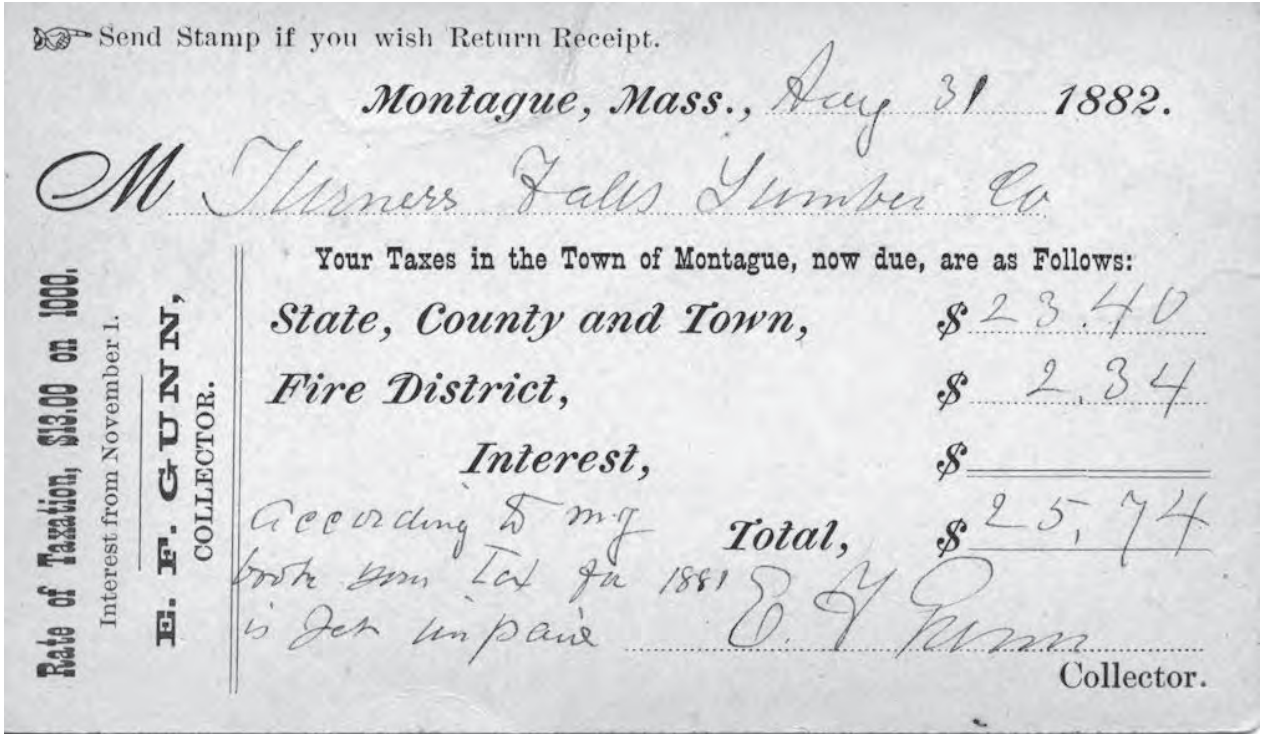 Send Stamp if you wish Return Receipt.
Montague, Mass., Aug 31 1882.
M Turners Falls Lumber Co
Rate of Taxation, $13.00 on 1000.
Interest from November 1.
E. F. GUNN,
COLLECTOR.
Your Taxes in the Town of Montague, now due, are as Follows:
State, County and Town, $ 23.40
Fire District, $ 2.34
Interest, $
Total, $ 25,74
According to my
book your Tax for 1881
is yet unpaid
E. F. Gunn
Collector.